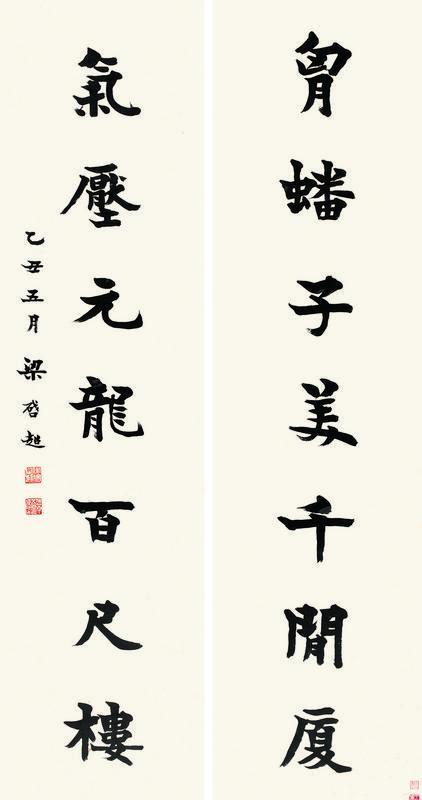 胷蟠子美千閒厦
氣壓元龍百尺樓
乙丑五月
梁啓超